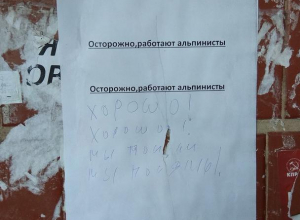 Я
ОВ
Осторожно,работают альпинисты
Осторожно,работают альпинисты
ХОРОШО!
ХОРОШО!
МЫ
МЫ